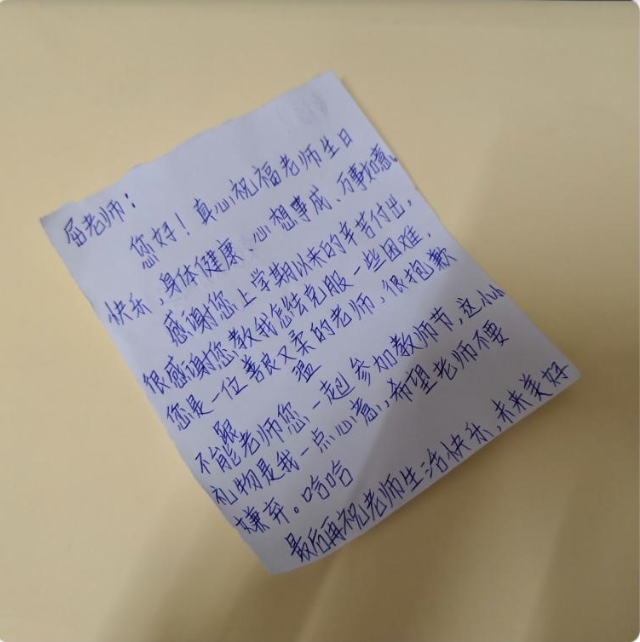 屈老师：
您好！真心祝福老师生日
快乐，身体健康、心想事成、万事如意。
感谢您上学期以来的辛苦付出，
很感谢您教我怎么去克服一些困难，
您是一位善良又温柔的老师，很抱歉
不能跟老师您一起参加教师节，这小小
礼物是我一点心意，希望老师不要
嫌弃。哈哈
最后再祝老师生活快乐，未来美好